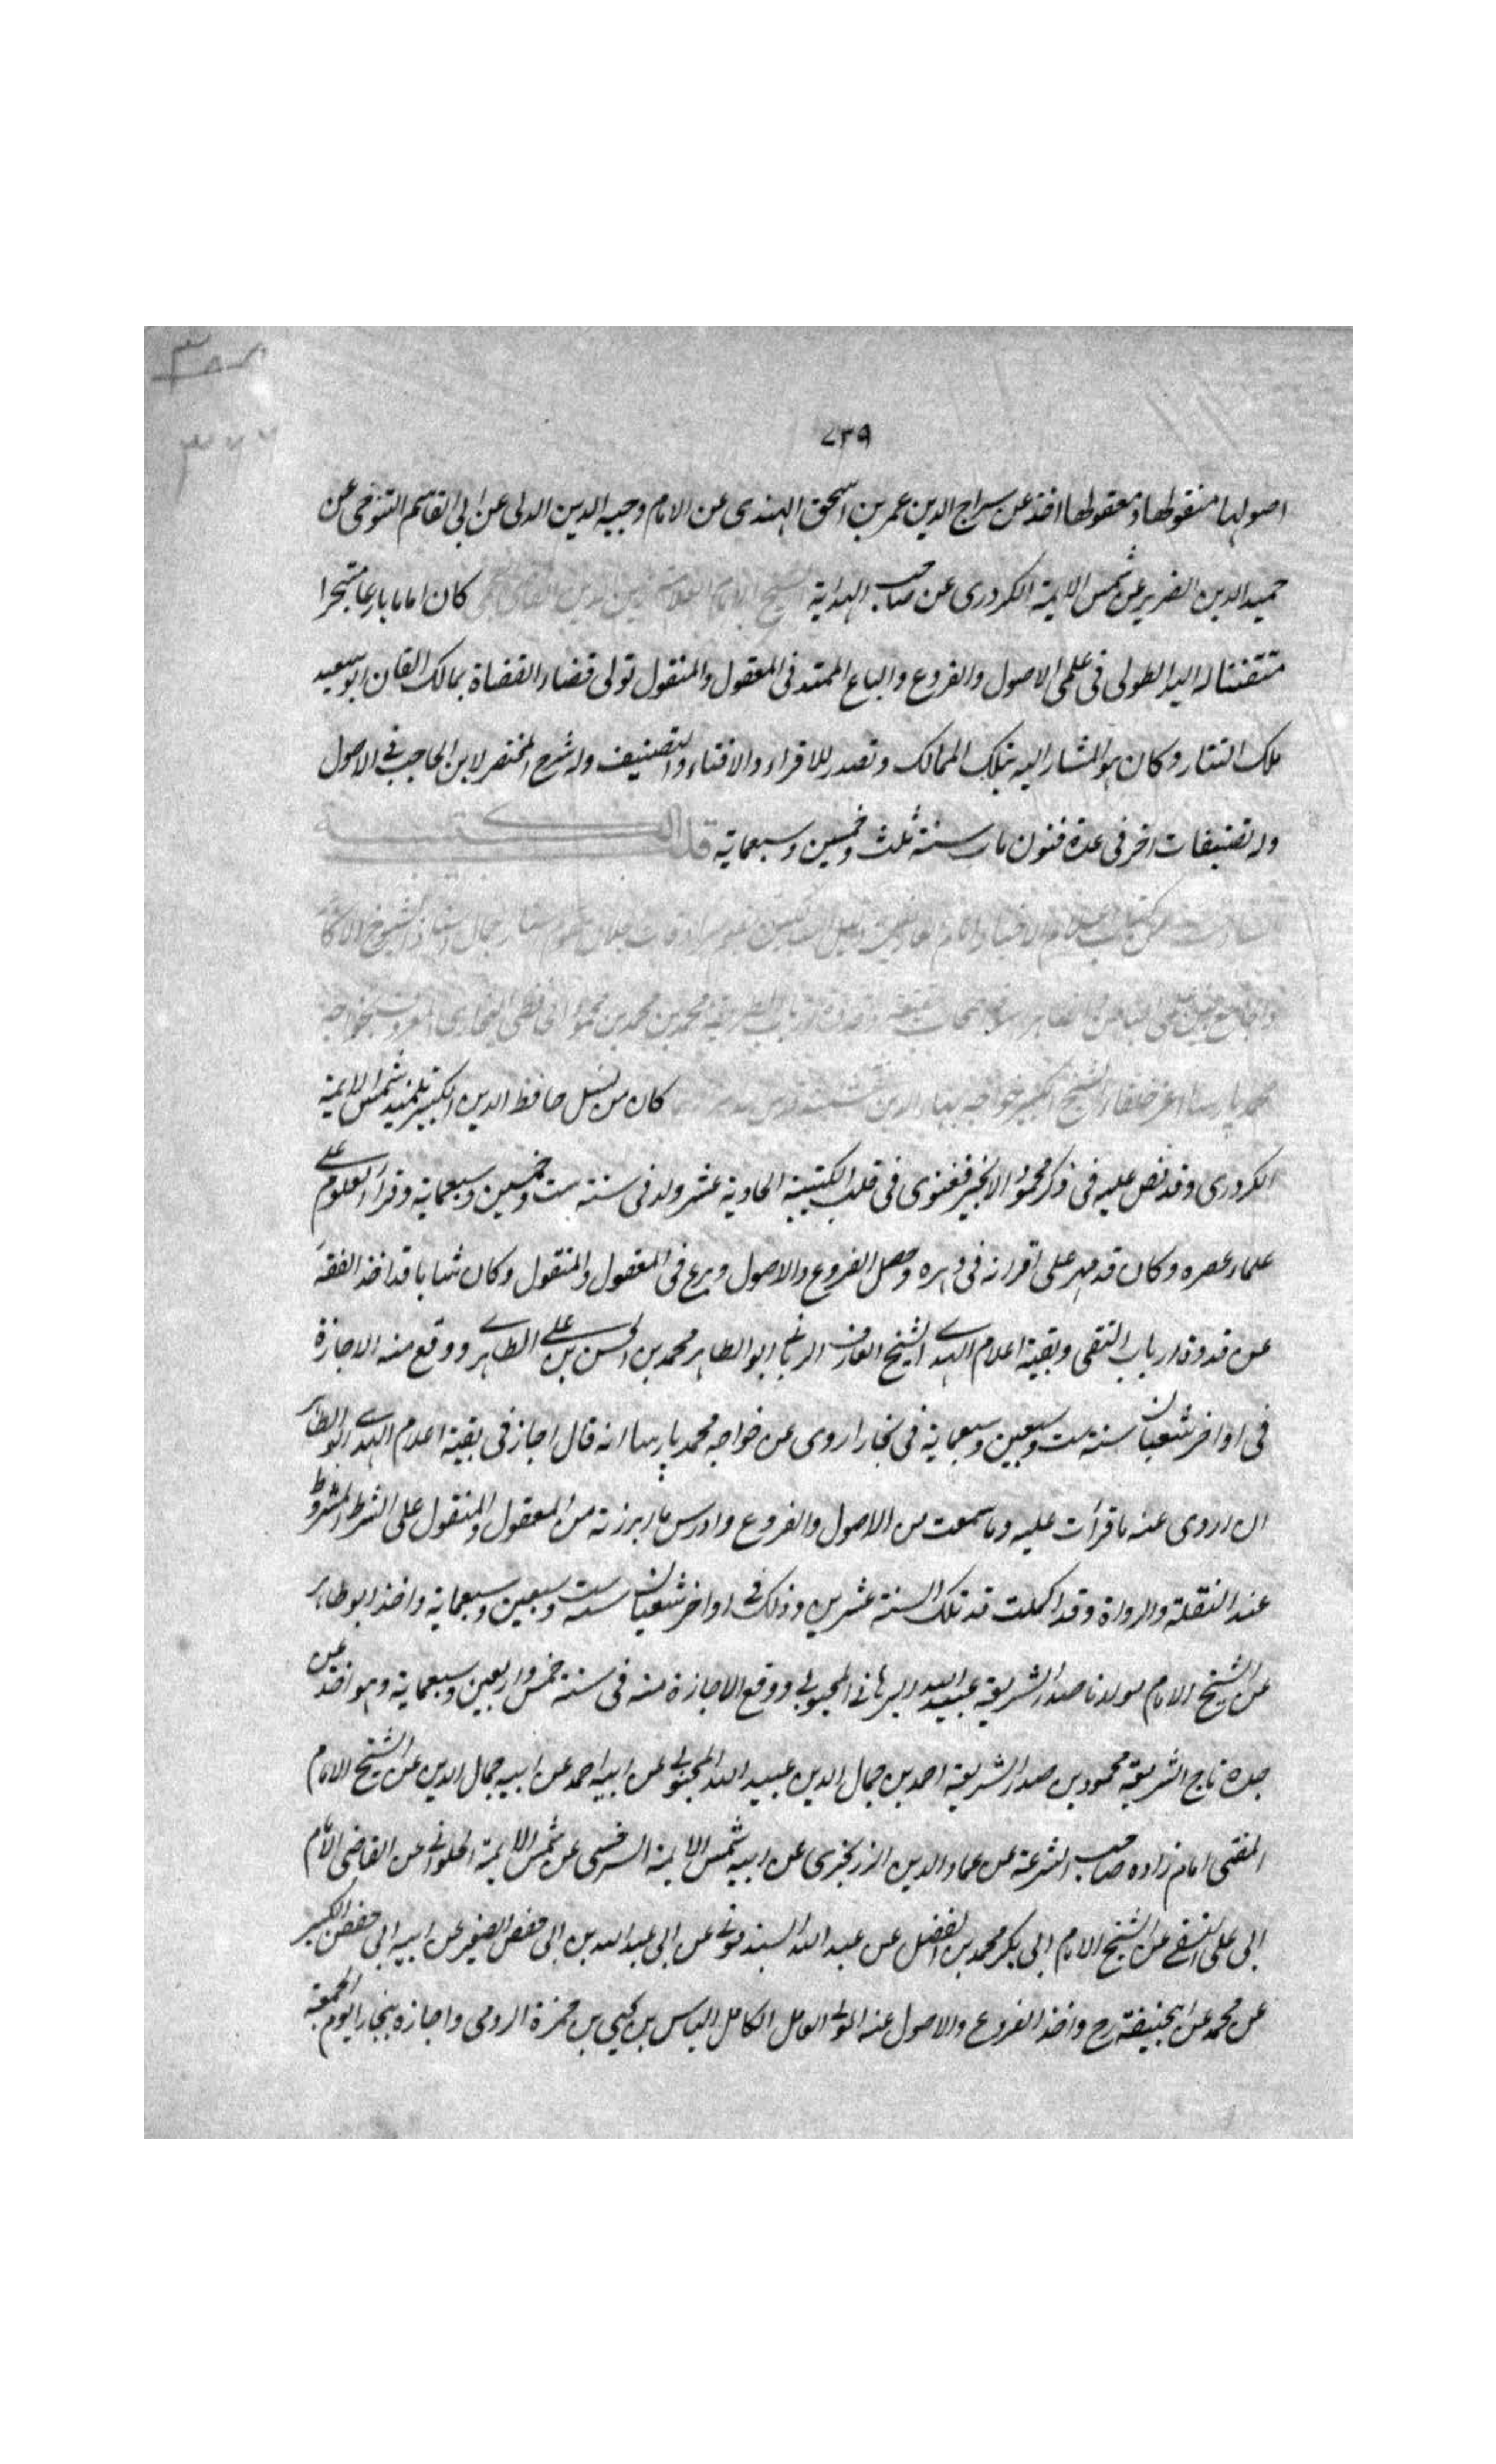 ٧٣٩
اصولها منقولها ومعقولها اخذ عن سراج الدين عمر بن اسحق الهندى عن الامام وجيه الدين الدلى عن ابى القاسم التنوخى عن
حميد الدين الضرير عن شمس الايمة الكردرى عن صاحب الهداية الشيخ الامام العلامة كان اماما بارعا متبحرا
متقننا له اليد الطولى فى علمى الاصول والفروع والباع الممتد فى المعقول والمنقول تولى قضاء القضاة بمالك القان ابو سعيد
ملك التتار وكان هو المشار اليه بتلك الممالك وتصدر للاقراء والافتاء والتصنيف وله شرح المختصر لابن الحاجب فى الاصول
وله تصنيفات اخر فى عدة فنون مات سنة ثلث وخمسين وسبعماية قلد الكتيبة
محمد بن محمد بن محمود الحافظى البخارى المعروف بخواجه
محمد پارسا اعز خلفاء الشيخ الكبير خواجه بهاء الدين نقشبند كان من نسل حافظ الدين الكبير تلميذ شمس الايمة
الكردرى وقد نص عليه فى ذكر محمود الانجير فغنوى فى قلب الكتيبة الحادية عشر ولد فى سنة ست وخمسين وسبعماية وقرأ العلوم على
علماء عصره وكان قد مهر على اقرانه فى دهره وحصل الفروع والاصول وبرع فى المعقول والمنقول وكان شابا قد اخذ الفقه
عن قدوة ارباب التقى وبقية اعلام الهدى الشيخ العارف الربانى ابو الطاهر محمد بن الحسن بن على الطاهرى ووقع منه الاجازة
فى اواخر شعبان سنة ست وسبعين وسبعماية فى بخارا روى عن خواجه محمد پارسا انه قال اجاز فى بقية اعلام الهدى ابو الطاهر
ان اروى عنه ما قرأت عليه وما سمعت من الاصول والفروع وادرس ما ابرزته من المعقول والمنقول على الشرط المشروط
عند النقلة والرواة وقد اكملت قد تلك السنة عشرين وذلك فى اواخر شعبان سنة ست وسبعين وسبعماية واخذ ابو طاهر
عن الشيخ الامام مولانا صدر الشريعة عبيد الله البرهانى المحبوبى ووقع الاجازة منه فى سنة خمس واربعين وسبعماية وهو اخذ عن
جده تاج الشريعة محمود بن صدر الشريعة احمد بن جمال الدين عبيد الله المحبوبى عن ابيه احمد عن ابيه جمال الدين عن الشيخ الامام
المفتى امام زاده صاحب الشرعة عن عماد الدين الزرنجرى عن ابيه شمس الايمة السرخسى عن شمس الايمة الحلوانى عن القاضى الامام
ابى على النسفى عن الشيخ الامام ابى بكر محمد بن الفضل عن عبد الله السبذمونى عن ابى عبد الله بن ابى حفص الصغير عن ابيه ابى حفص الكبير
عن محمد عن ابى حنيفة رح واخذ الفروع والاصول عنه المولى العامل الكامل الياس بن يحيى بن حمزة الرومى واجازه ببخارا يوم الجمعة